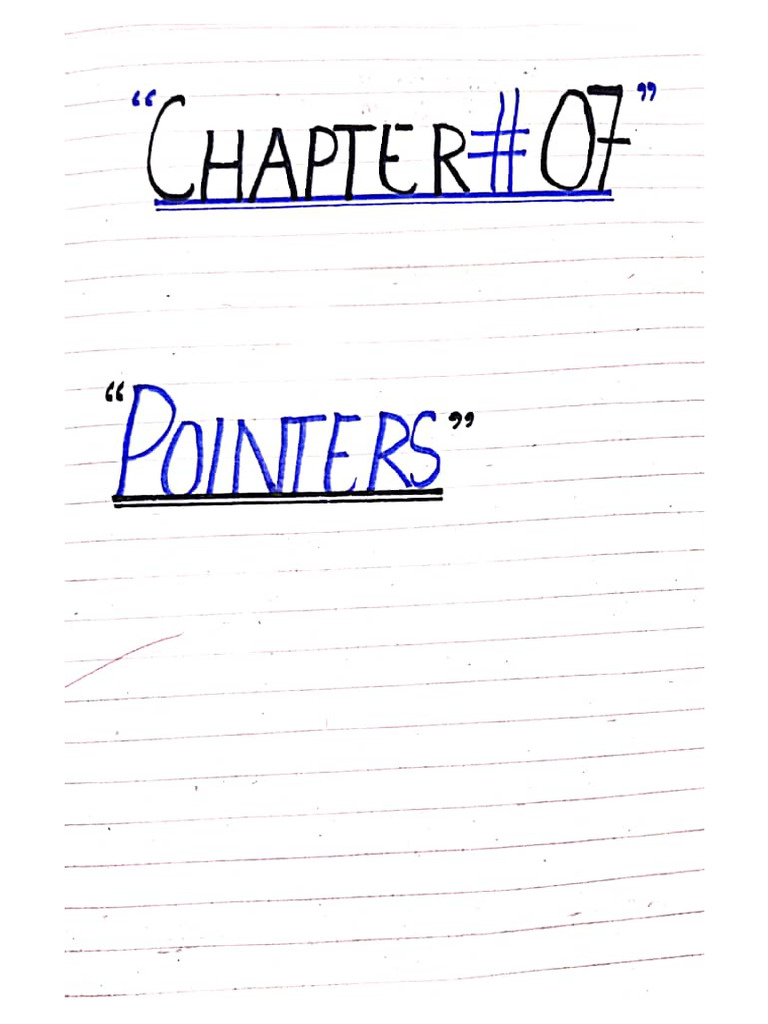 “CHAPTER # 07”
“POINTERS”